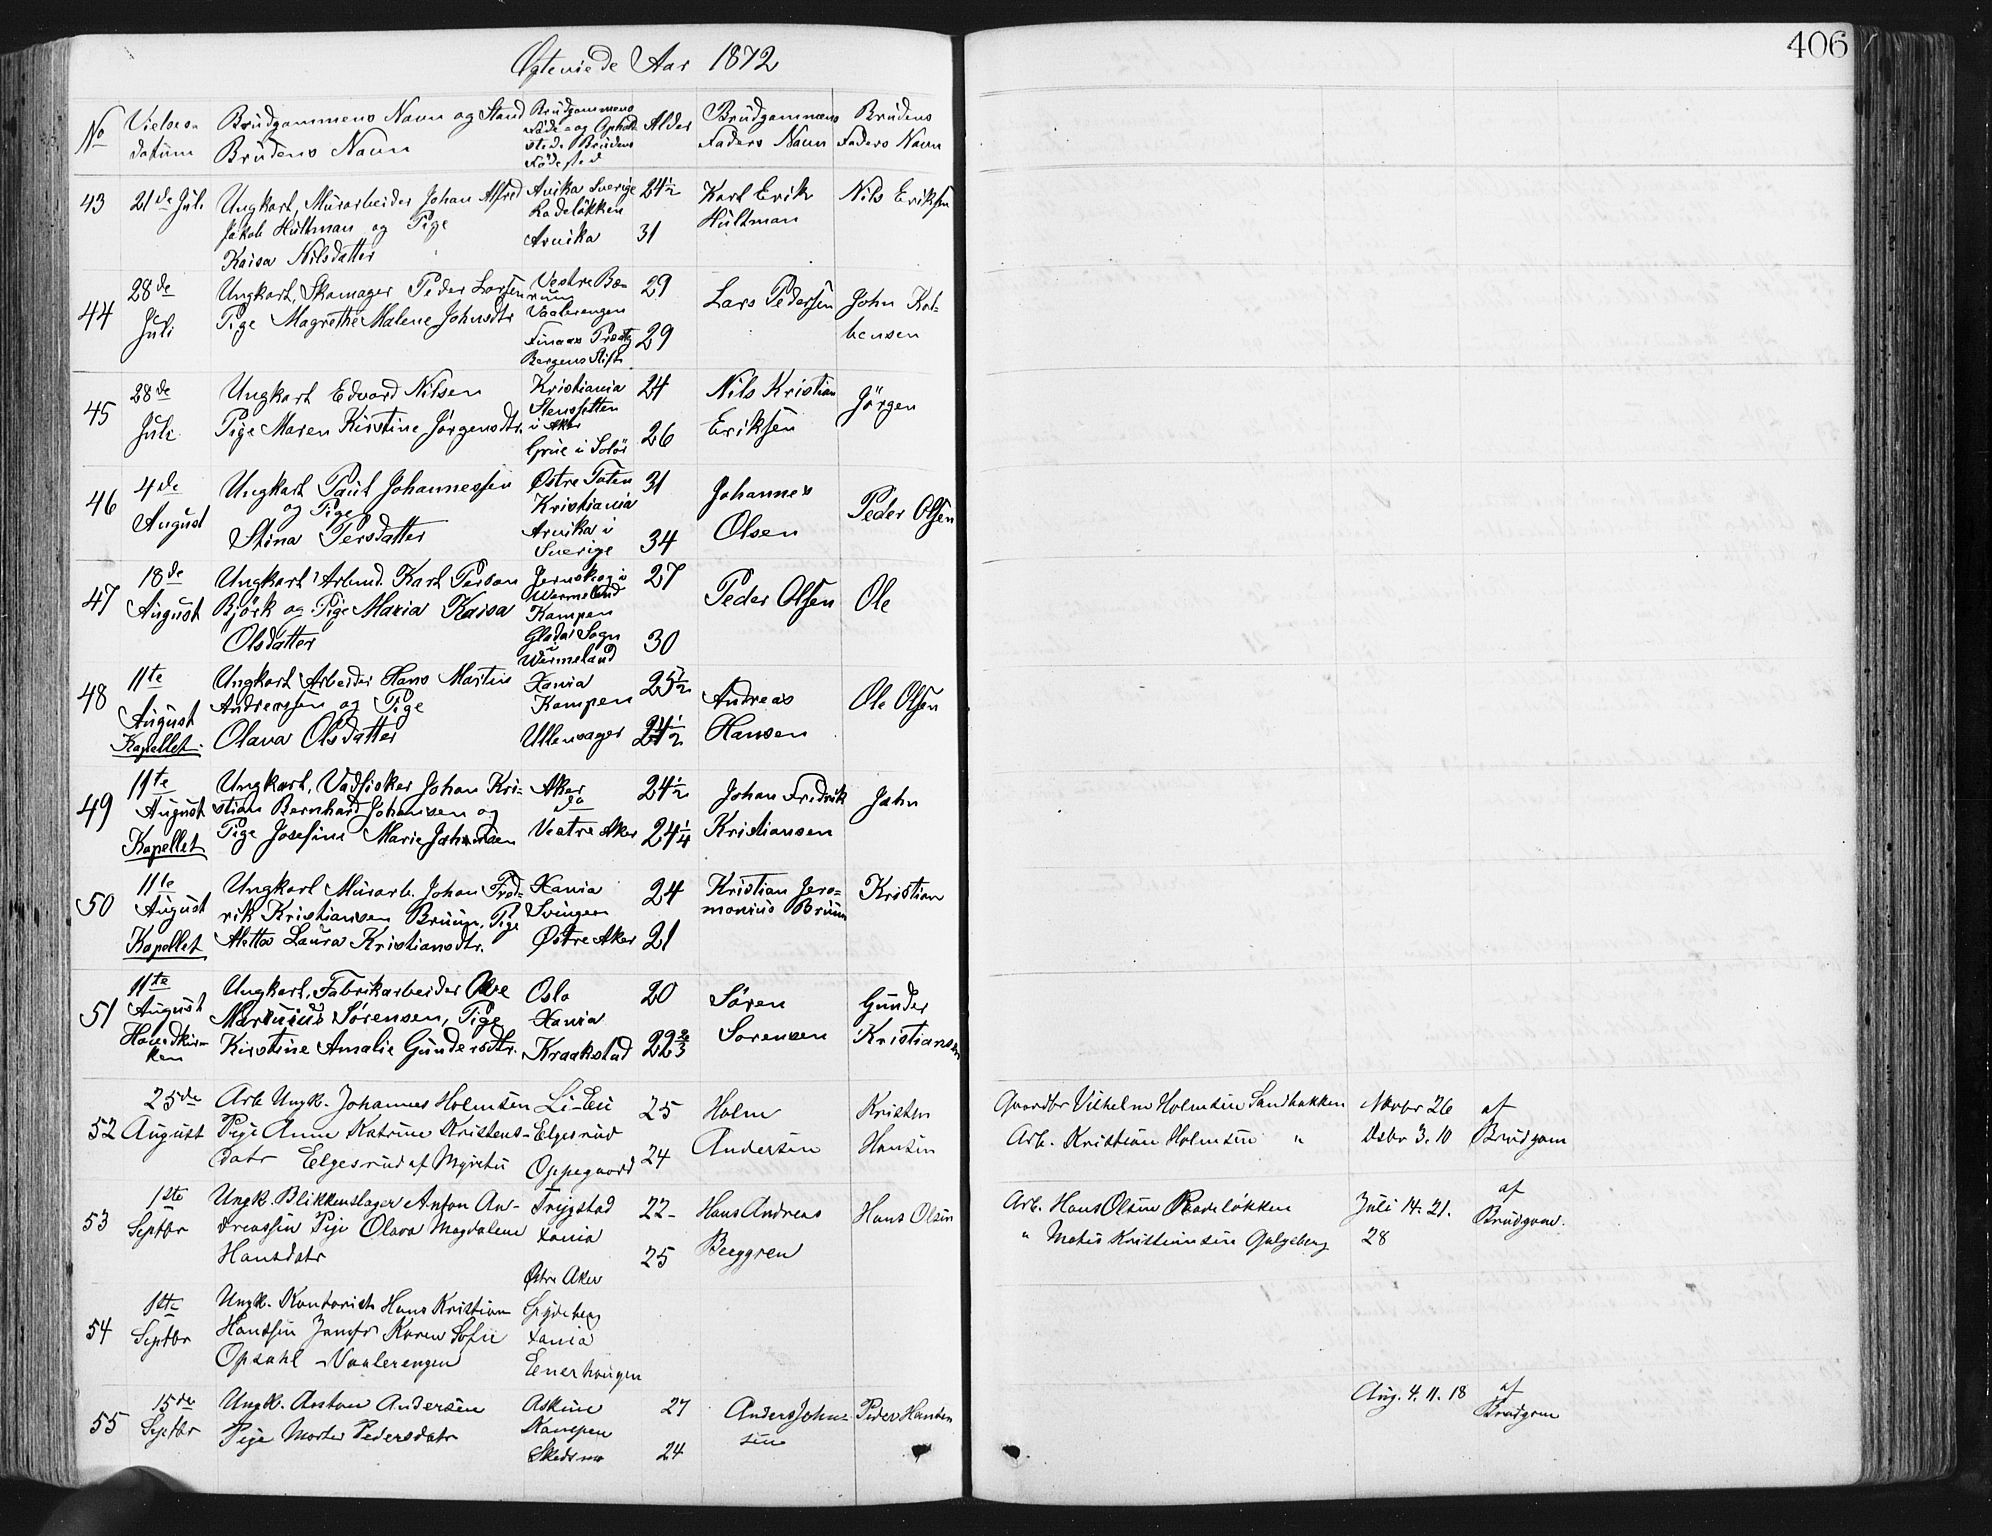 406
Ægteviede Aar 1872
No Vielses- datum Brudgommens Navn og Stand Brudens Navn Brudgommens Føde- og Opholdssted Brudens Fødested Alder Brudgommens Faders Navn Brudens Faders Navn
43 21de Juli Ungkarl, Murarbeider Johan Alfred Arvika Sverige 24½ Karl Erik Nils Eriksen
Jakob Hultman og Pige Rodeløkken Hultman
Kaisa Nilsdatter Arvika 31
44 28de Juli Ungkarl, Skomager Peder Larsen Vestre Bærum 29 Lars Pedersen John Kol-
Pige Magrethe Malene Johnsdtr Vaalerengen bensen
Finaas Præstg Bergens Stift 29
45 28de Juli Ungkarl Edvard Nilsen Kristiania 24 Nils Kristian Jørgen
Pige Maren Kirstine Jørgensdtr. i Aker Eriksen
Grue i Solør 26
46 4de August Ungkarl Paul Johannessen Østre Toten 31 Johannes Peder Olsen
og Pige Kristiania Olsen
Stina Persdatter Arvika i Sverige 34
47 18de August Ungkarl Arbmd. Karl Person Jernskog i Wermeland 27 Peder Olsen Ole
Björk og Pige Maria Kaisa Kampen
Olsdatter Glada Sogn i Wermeland 30
48 11te August Kapellet. Ungkarl Arbeider Hans Martin Xania 25½ Andreas Ole Olsen
Andreassen og Pige Kampen Hansen
Olava Olsdatter Ullensager 24½
49 11te August Kapellet Ungkarl, Johan Kri- Aker 24½ Johan Fredrik John
stian Bernhard Johansen og do Kristiansen
Pige Josefine Marie Johnsen Vestre Aker 24¼
50 11te August Kapellet Ungkarl Murarb. Johan Fred- Xania 24 Kristian Jero- Kristian
rik Kristiansen Bruun, Pige Svingen monius Bruun
Mette Laura Kristiansdtr. Østre Aker 21
51 11te August Hovedkir- ken Ungkarl, Fabrikarbeider Ole Oslo 20 Søren Gunder
Markuius Sørensen, Pige Xania Sorensen Kristiansen
Kirstine Amalie Gundersdtr. Kraakstad 22⅔
52 25de August Arb Ungk. Johannes Holmsen Li-Eie 25 Holm Kristen Gaardbr Vilhelm Holmsen Sandbakken Novbr 26 af
Pige Anne Katrine Kristens- Elgesrud Andersen Hansen Arb. Kristian Holmsen " Dsbr 3. 10 Brudgom
datr Elgesrud af Myrvold Oppegaard 24
53 1ste Septbr Ungk. Blikkenslager Anton An- Trygstad 22- Hans Andreas Hans Olsen Arb. Hans Olsen Rodeløkken Juli 14. 21. af
dreassen Pige Olava Magdalene Xania Berggren " Mathis Kristiansen Galgeberg 28 Brudgom.
Hansdatr Østre Aker 25
54 1ste Septbr Ungk. Kontorist Hans Kristian Spydeberg
Hanssen Jomfr Karen Sofie Xania
Opsahl - Vaalerengen Enerhaugen
55 15de Septbr Ungk. Anton Andersen Askim 27 Anders John- Peder Hansen Aug. 4. 11. 18 af
Pige Marte Pedersdatr Kampen sen Brudgom
Skedsmo 24